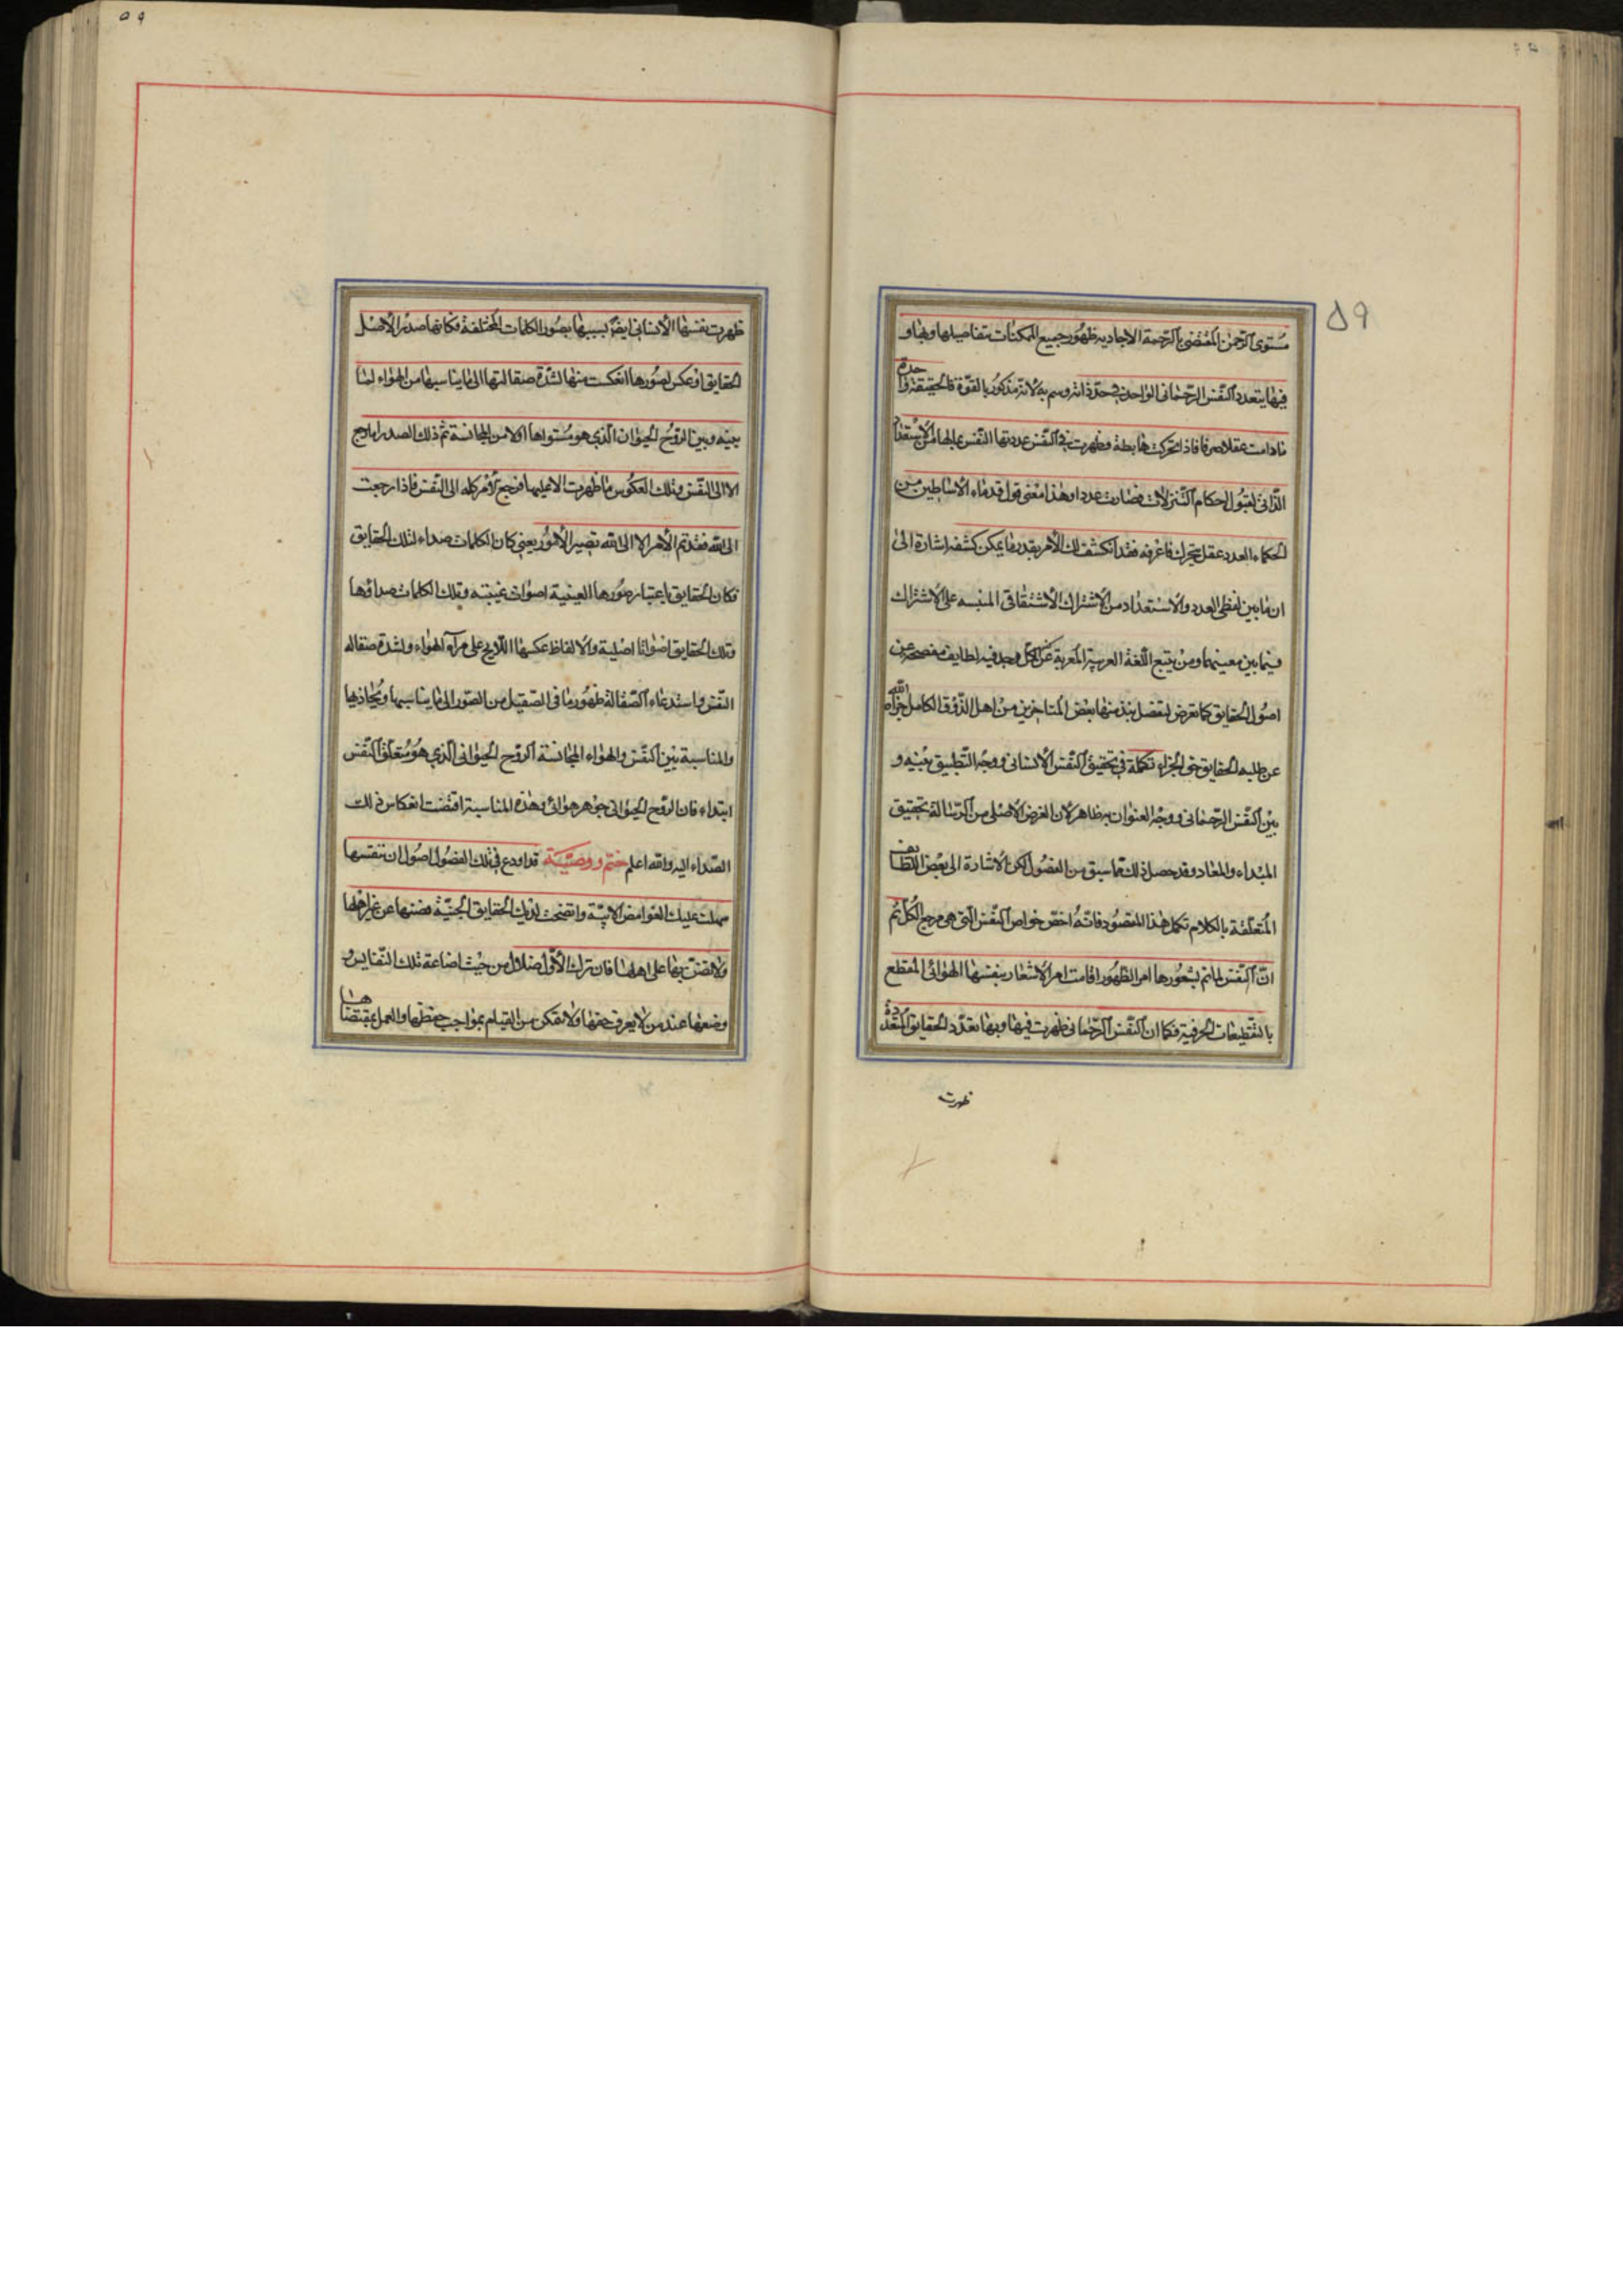 ٥٩
مستوى الرحمن المقتضى بالرحمة الايجادية ظهور جميع الممكنات بتفاصيلها وبها و
فيها يتعدد النفس الرحمانى الواحد فى حد ذاته وسم به لانه مذكور بالقوة فالحقيقة واحدة
مادامت عقلا صرفا فاذا تحركت هابطة وظهرت فى النفس عددتها النفس بما لها من الاستعداد
الذاتى لقبول احكام التنزلات فصارت عددا وهذا معنى قول قدماء الاساطين من
الحكماء العدد عقل متحرك فاعرفه فقد انكشف لك الأمر بقدر ما يمكن كشفه اشارة الى
ان ما بين لفظى العدد والاستعداد من الاشتراك الاشتقاقى المنبه على الاشتراك
فيما بين معنييهما ومن تتبع اللغة العربية المعربة عن الكل وجد فيه لطايف مفصحة عن
اصول الحقايق كما تعرض لتفصيل نبذ منها بعض المتاخرين من اهل الذوق الكامل جزاه الله
عن طلبه الحقايق خير الجزاء تكملة فى تحقيق النفس الانسانى ووجه التطبيق بينه و
بين النفس الرحمانى ووجه العنوان به ظاهر لان الغرض الاصلى من الرسالة تحقيق
المبداء والمعاد وقد حصل ذلك مما سبق من الفصول لكن الاشارة الى بعض اللطايف
المتعلقة بالكلام تكمل هذا المقصود فانه اخص خواص النفس التى هى مرجع الكل ثم
ان النفس لما تم بشعورها امر الظهور اقامت امر الاشعار بنفسها الهوائى المقطع
بالتقطيعات الحرفية فكما ان النفس الرحمانى ظهرت فيها وبها تعدد الحقايق المتعددة
ظهرت
ظهرت نفسها الانسانى ايضا بسببها بصور الكلمات المختلفة فكانها صدى الاصل
الحقايق او عكس لصورها انعكست منها لشدة صقالتها الى ما يناسبها من الهواء لما
بينه وبين الروح الحيوان الذي هو مستواها اولا من المجانسة ثم ذلك الصدى لم يرجع
الا الى النفس وتلك العكوس ما ظهرت الا عليها فرجع الامر كله الى النفس فاذا رجعت
الى الله فقد تم الأمر الا الى الله تصير الأمور يعني كان الكلمات صداء لتلك الحقايق
فكان الحقايق باعتبار صورها العينية اصوات غيبية وتلك الكلمات صداؤها
وتلك الحقايق اضواءا اصلية والالفاظ عكسها اللايح على مرآة الهواء ولشدة صقاله
النفس واستدعاء الصقالة ظهور ما فى الصقيل من الصور الى ما يناسبها ويحاذيها
والمناسبة بين النفس والهواء المجانسة الروح الحيوانى الذي هو متعلق النفس
ابتداء فان الروح الحيوانى جوهر هوائى وهذه المناسبة اقتضت انعكاس ذلك
الصداء اليه والله اعلم ختم ووصية قد اودع فى تلك الفصول اصول ان تنفسها
سهلت عليك الغوامض الابية واتضحت لديك الحقايق الخفية فصنها عن غير اهلها
ولا تضنن بها على اهلها فان ترك الأول ضلال من حيث اضاعة تلك النفايس و
وضعها عند من لا يعرف حقها ولا يتمكن من القيام بمواجب حفظها والعمل بمقتضاها